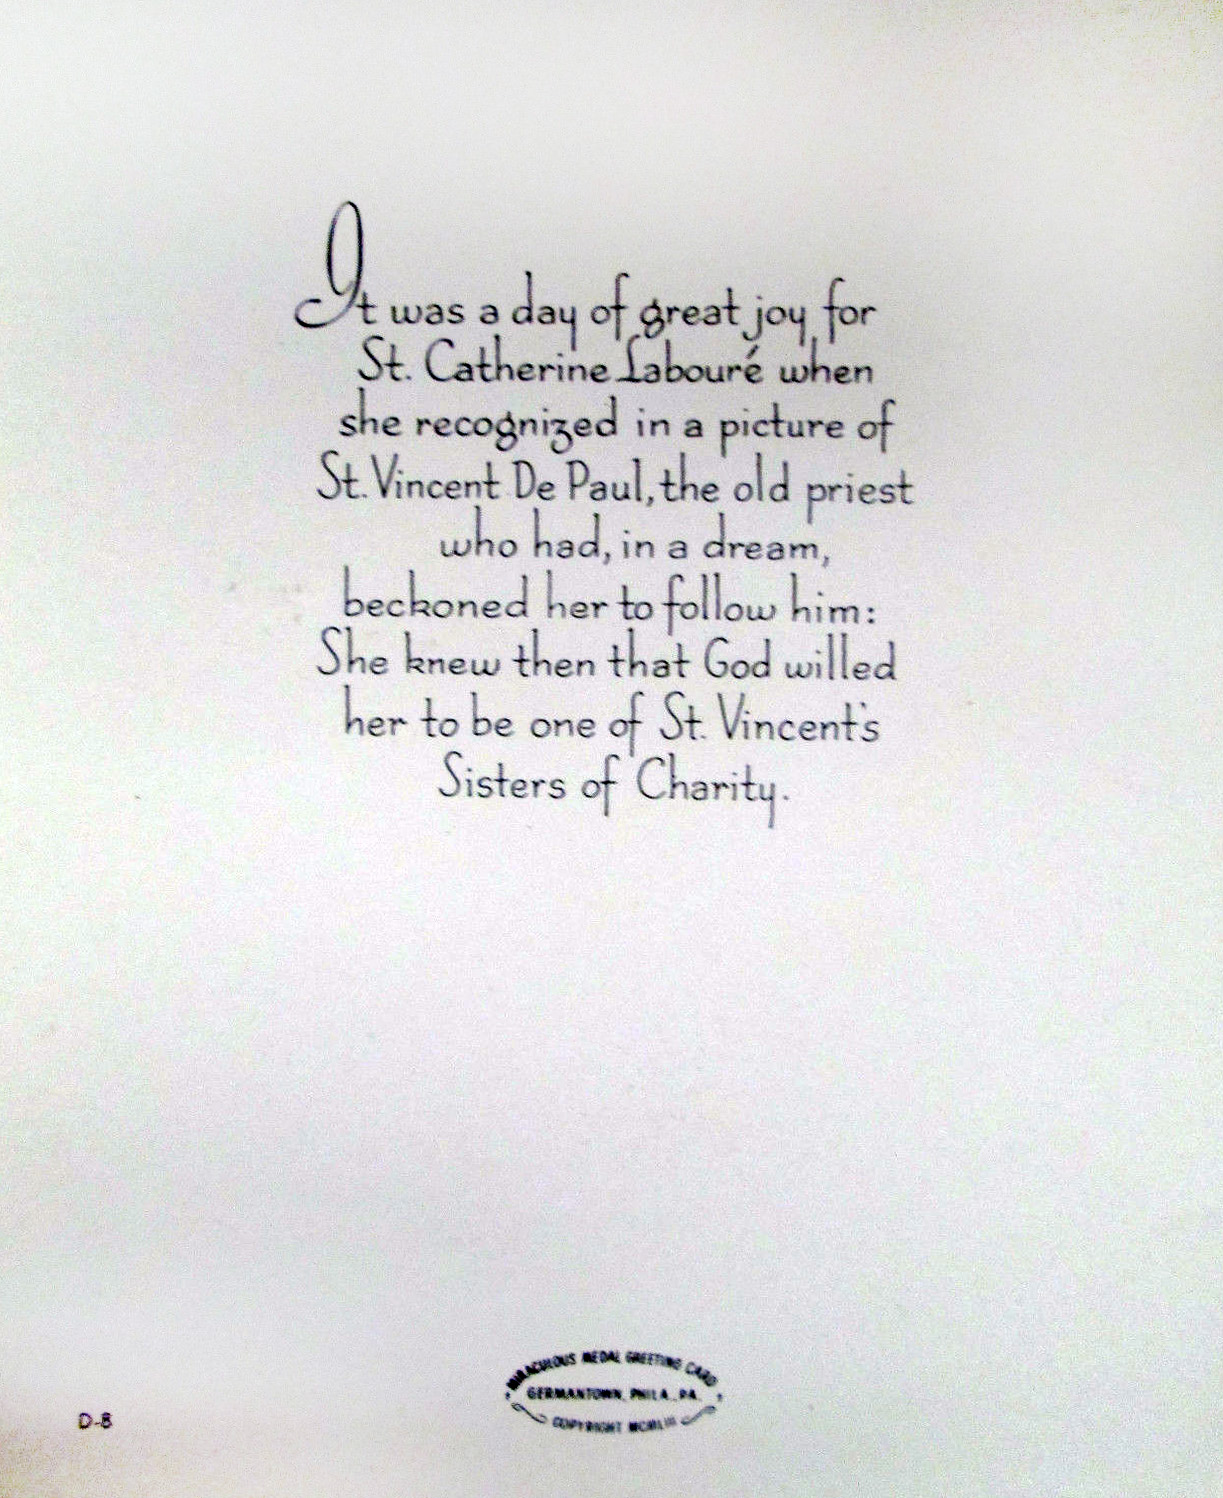 It was a day of great joy for
St. Catherine Labouré when
she recognized in a picture of
St. Vincent De Paul, the old priest
who had, in a dream,
beckoned her to follow him:
She knew then that God willed
her to be one of St. Vincent's
Sisters of Charity.
MIRACULOUS MEDAL GREETING CARD
GERMANTOWN, PHILA., PA.
COPYRIGHT MCMLIII
D-8